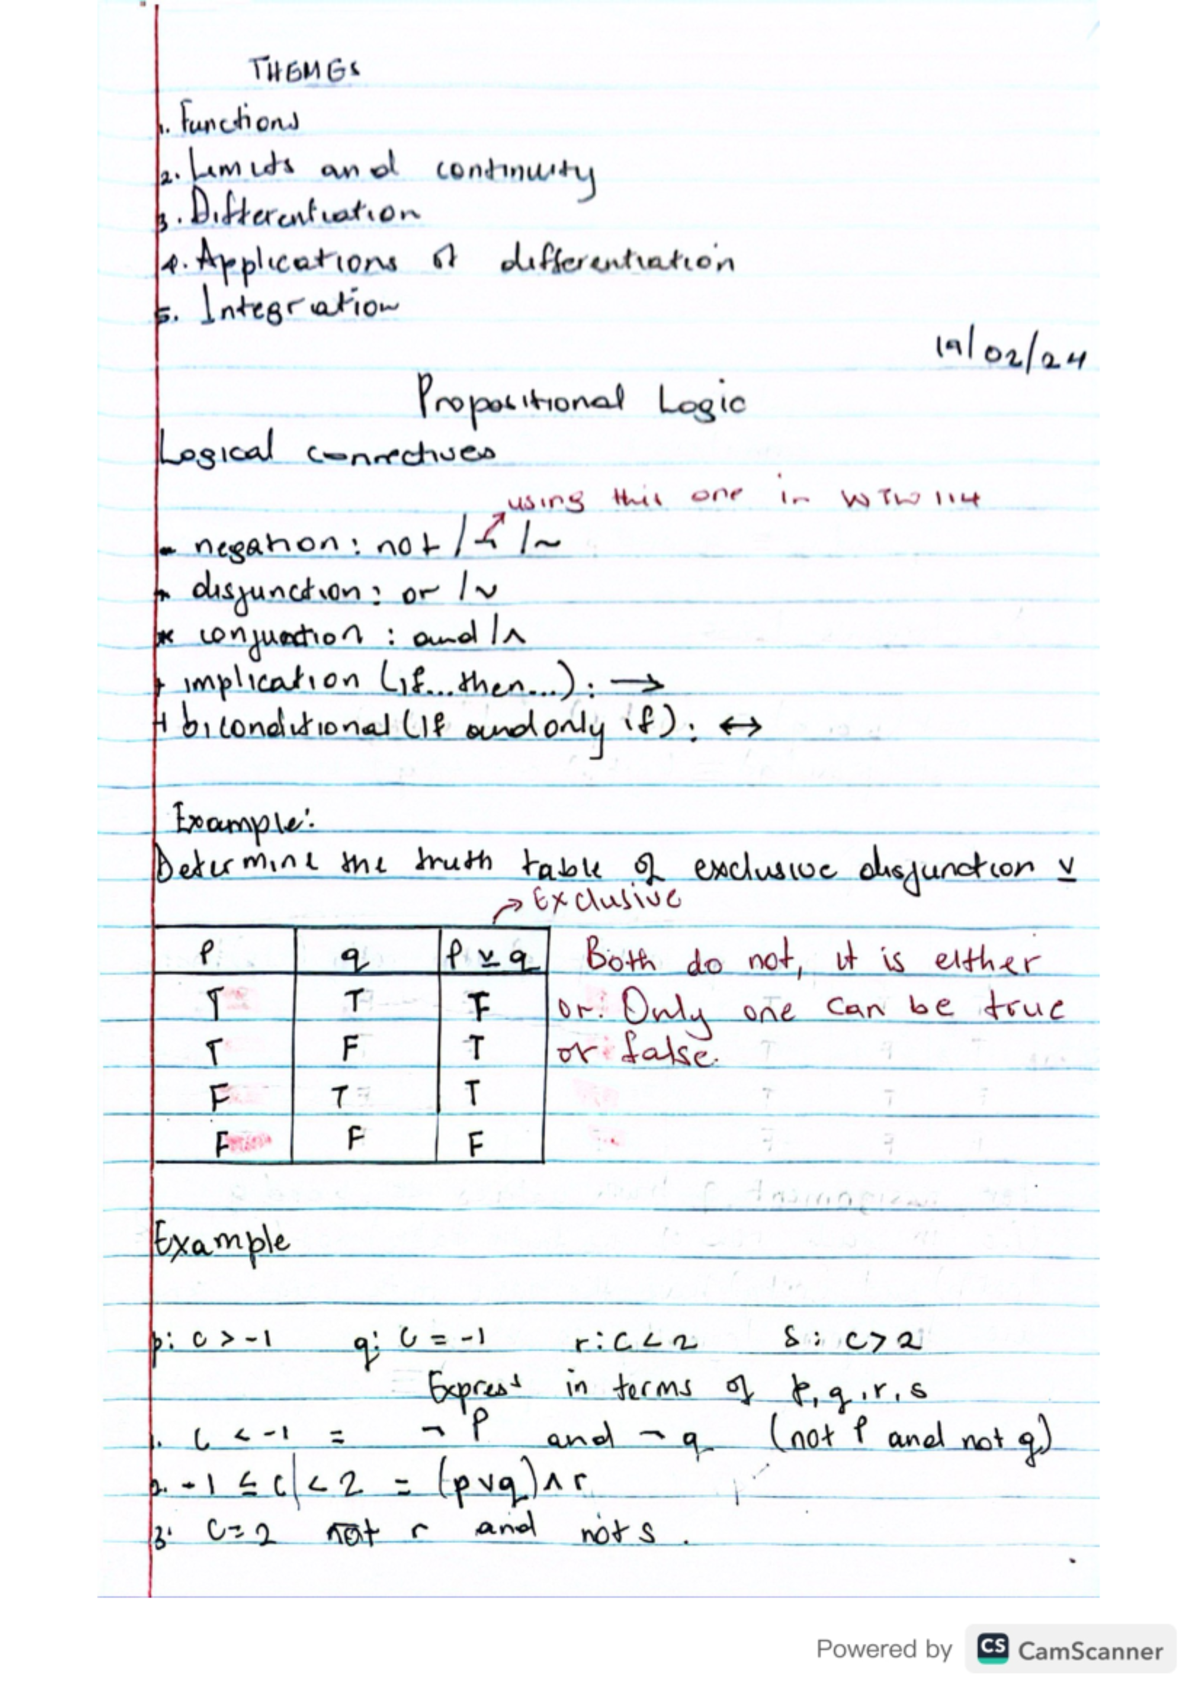 THEMES
1. Functions
2. Limits and continuity
3. Differentiation
4. Applications of differentiation
5. Integration
19/02/24
Propositional Logic
Logical connectives
using this one in WTW 114
- negation: not / ¬ / ~
* disjunction: or / ∨
* conjunction: and / ∧
+ implication (if...then...): →
+ biconditional (if and only if): ↔
Example:
Determine the truth table of exclusive disjunction ⊻
→ Exclusive
p q p ⊻ q Both do not, it is either
T T F or. Only one can be true
T F T or false.
F T T
F F F
Example
p: c > -1 q: c = -1 r: c < 2 s: c > 2
Express in terms of p, q, r, s
1. c < -1 = ¬ p and ¬ q (not p and not q)
2. -1 ≤ c < 2 = (p ∨ q) ∧ r
3. c = 2 not r and not s.
Powered by CS CamScanner